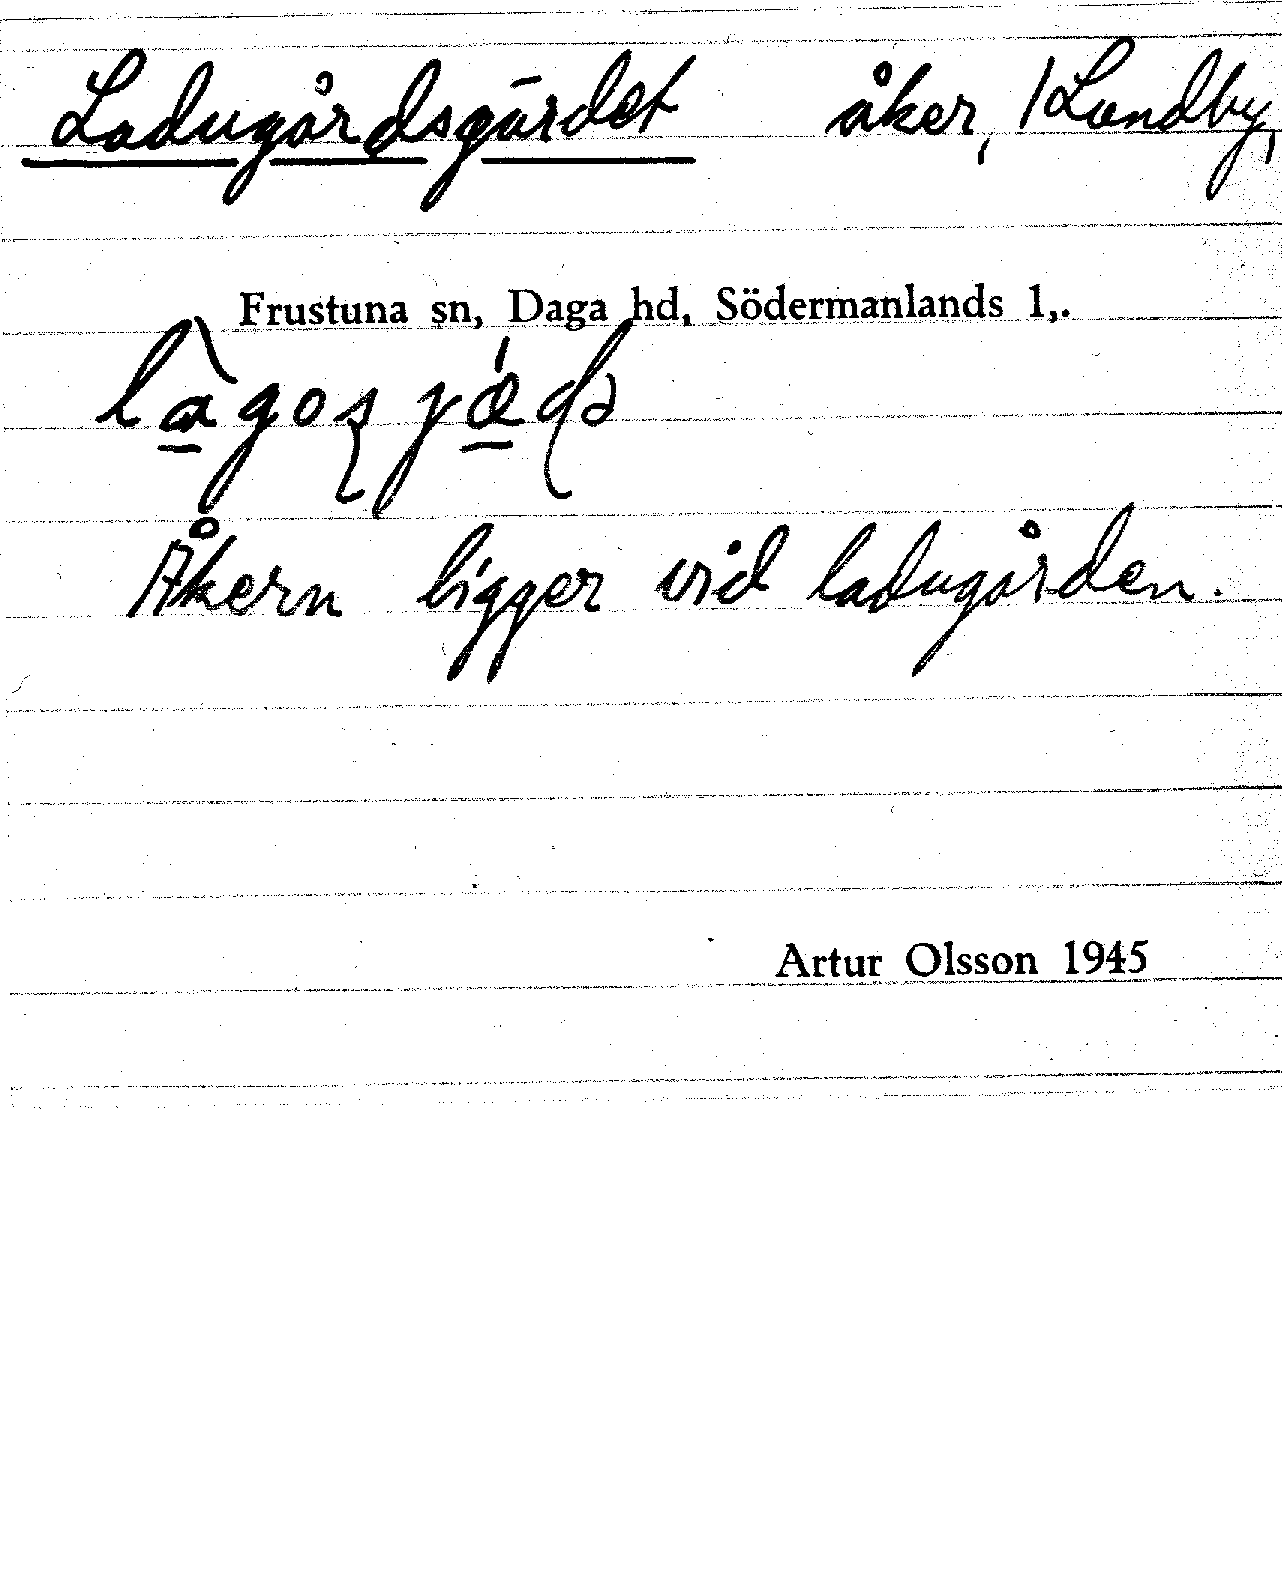 Ladugårdsgärdet åker, /Lundby,
Frustuna sn, Daga hd, Södermanlands l,.
Åkern ligger vid ladugården.
Artur Olsson 1945